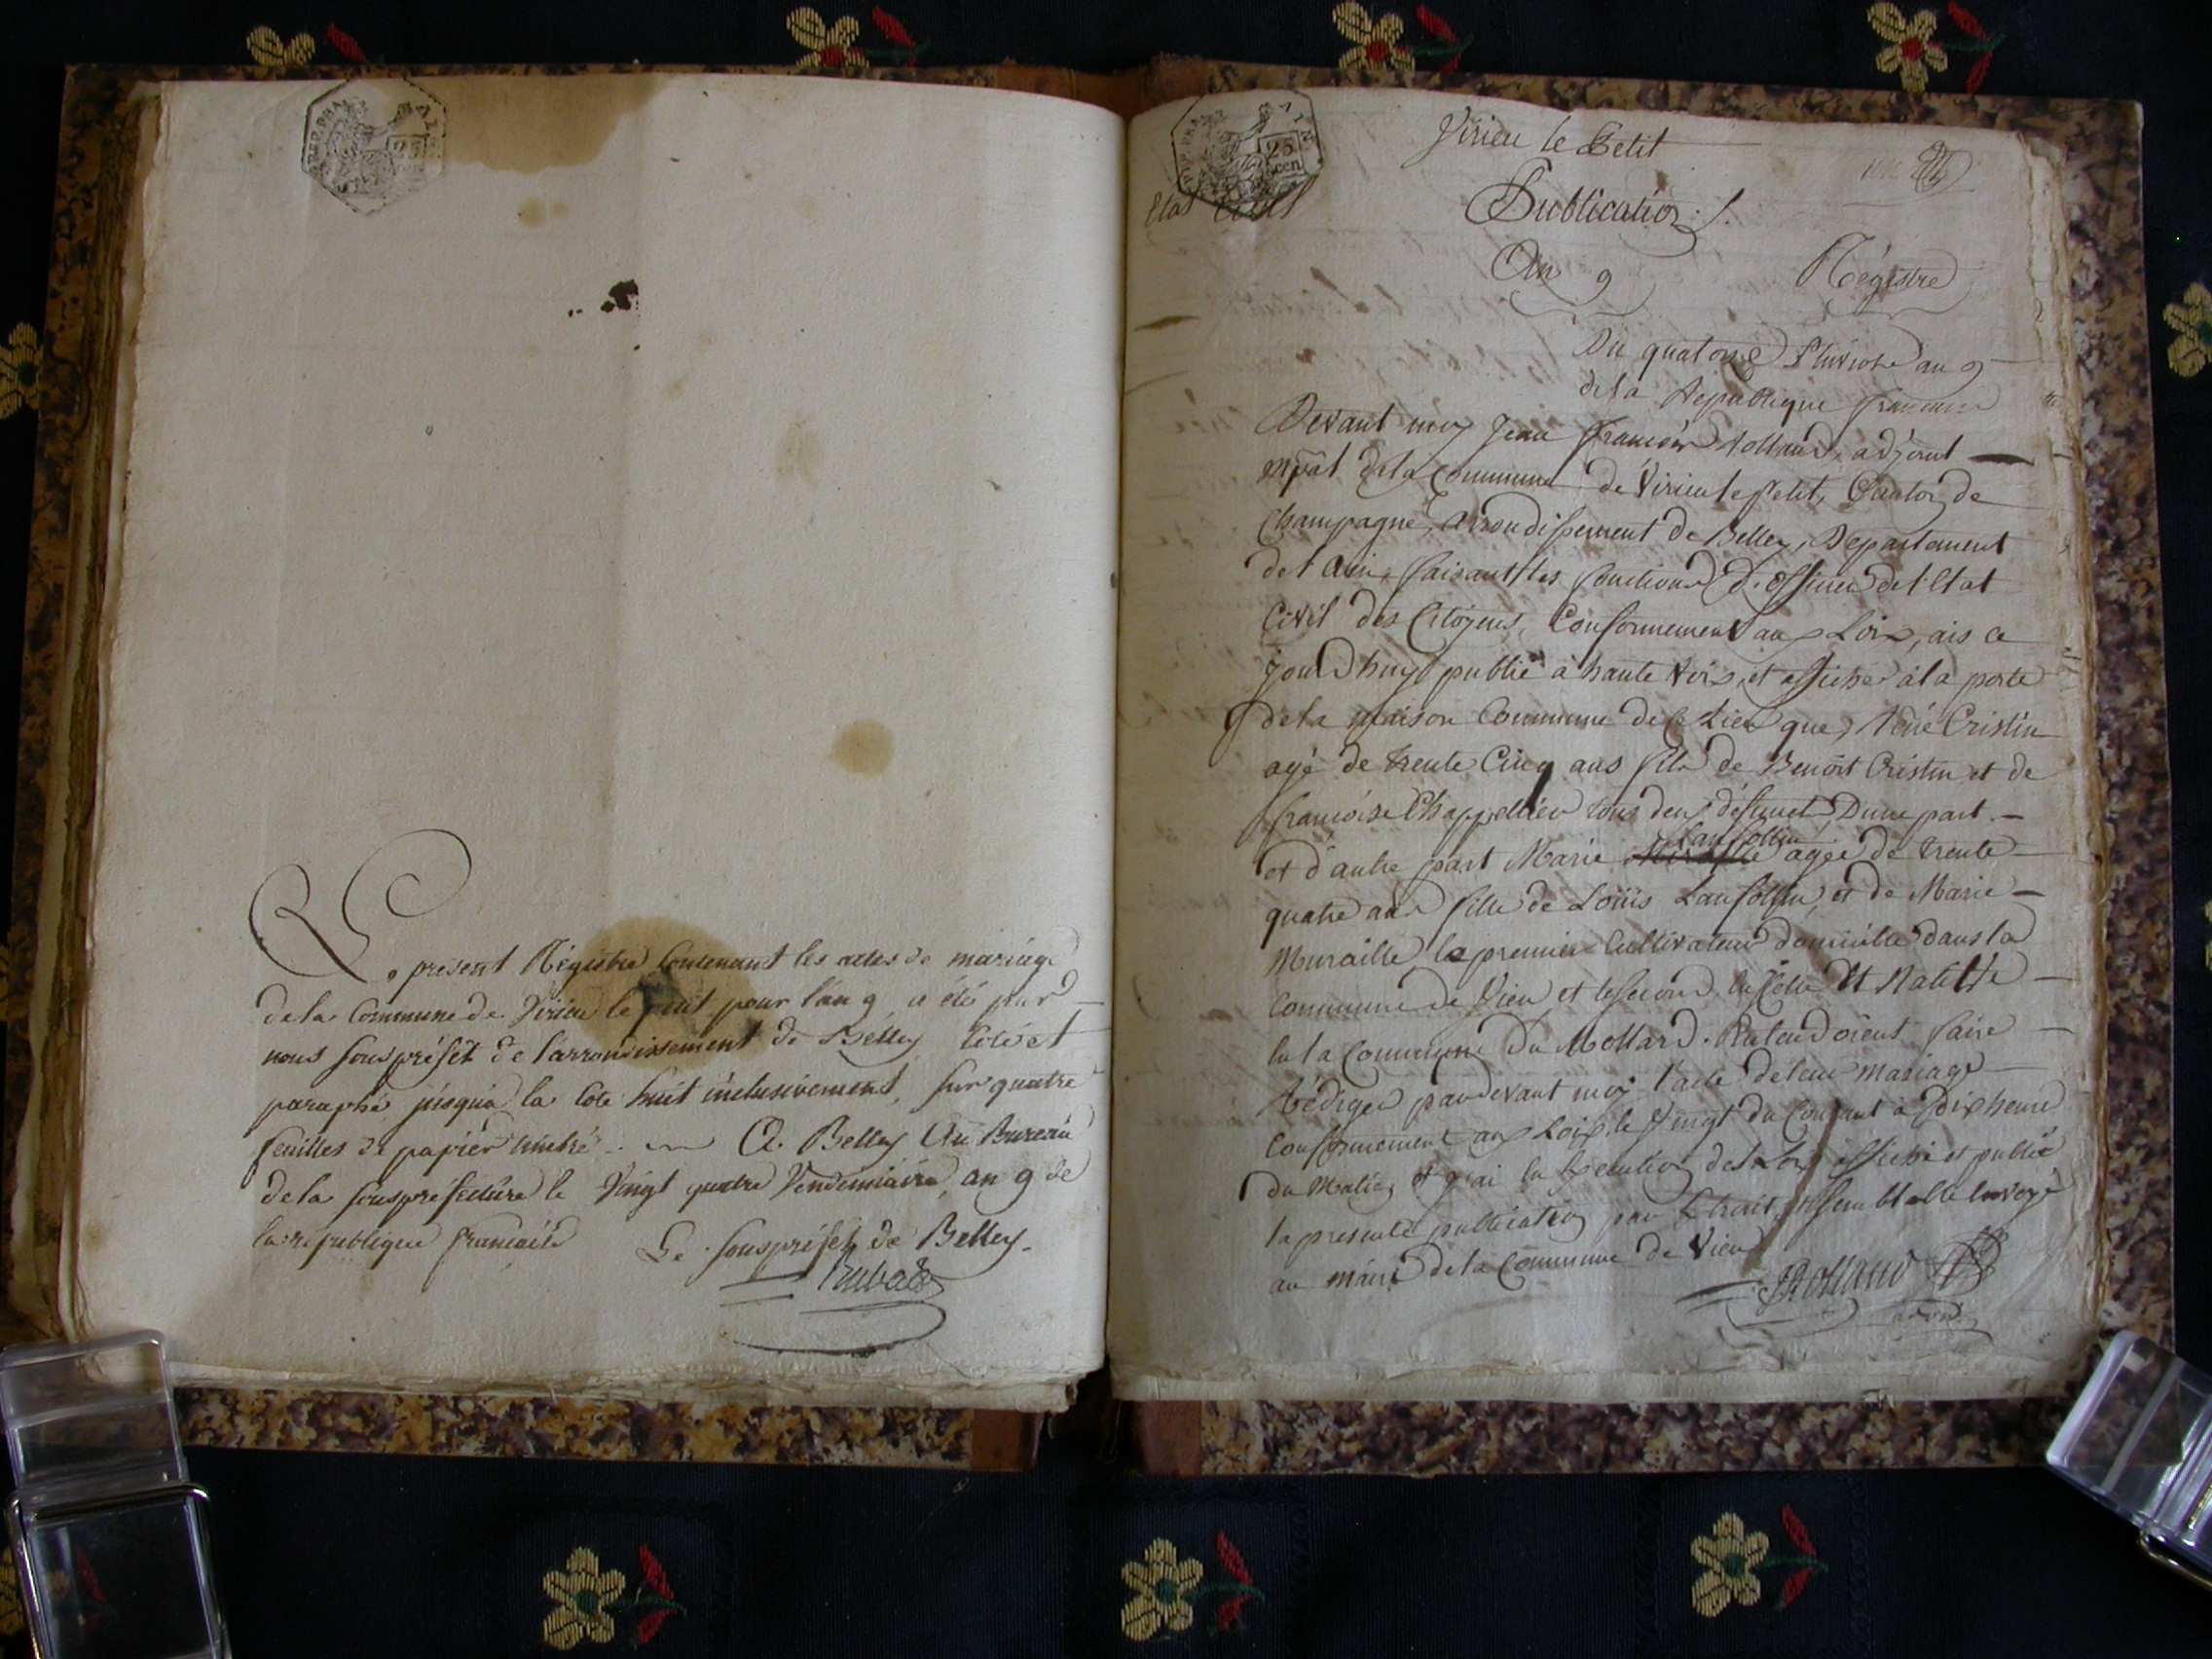 REP. FRA
25
Le present Régistre Contenant les actes de mariage
de la Commune de Virieu le petit pour l'an 9 a été par
nous sous préfét de l'arrondissement de Bélley Coté et
paraphé jusqu'a la Cote huit inclusivement, sur quatre
feuilles de papier timbré .. A Belley Au Bureau
de la souspréfecture le Vingt quatre Vendemiaire, an 9 de
la republique francaise Le souspréfet de Belley.
Rubat
25
cen
Virieu le Petit
Etat Civil
Publication
An 9 Régistre
Du quatorze Pluviose an 9
de la Republique francaise
Devant moy Jean francois Rolland, adjoint
mpal de la Commune de Virieu le petit, Canton de
Champagne, Arrondissement de Belley, Departement
de l'Ain, faisant les fonctions d'officier de l'Etat
Civil des Citoyens, Conformement aux Loix, ais ce
jourdhuy publié à haute voix, et afficher à la porte
de la maison Commune de Ce Lieu que, Réné Cristin
agé de trente Cinq ans fils de Benoit Cristin et de
francoise Chappellier tous deux défunct Dune part. —
et d'autre part Marie Lanfollin agée de trente
quatre ans fille de Loüis Lanfollin, et de Marie
Muraille le premier Cultivateur domicillié dans la
Commune de Vieu et le second, en Celle
la Commune Du Mollard. Entendoient faire
rédiger pardevant moy l'acte de leur mariage
Conformement aux Loix, le Vingt du Courant à Dix heure
du Matin, et quai en Execution des Loix affiché et publié
la presente publication par Extrait semblable Envoyé
au maire de la Commune de Vieu
JRolland